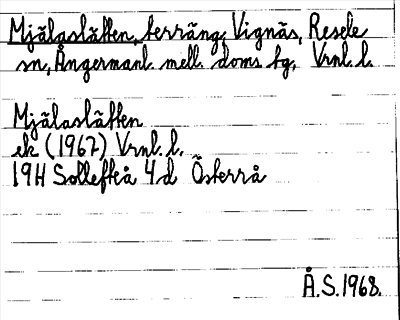 Mjälaslätten, terräng, Vignäs, Resele
sn, Ångermanl. mell. doms tg, Vrnl. l.
Mjälaslätten
ek (1967) Vrnl. l.
19H Sollefteå 4d Österrå
Å.S. 1968.